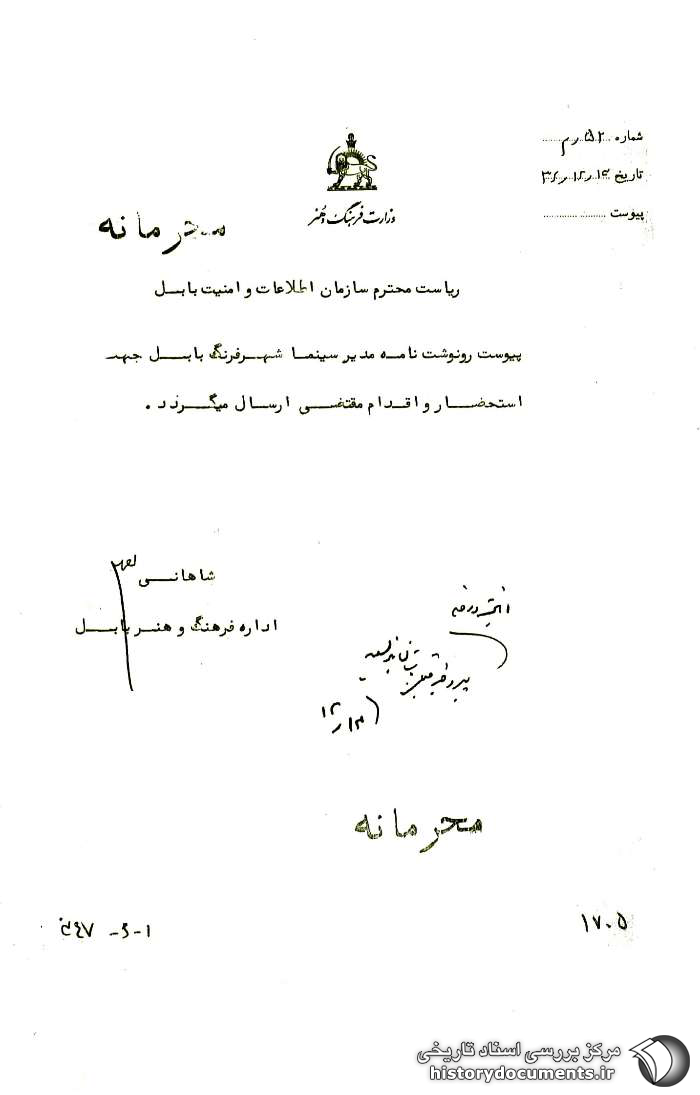 شماره ۵۲ رم
تاریخ
پیوست
وزارت فرهنگ و هنر
محرمانه
ریاست محترم سازمان اطلاعات و امنیت بابل
پیوست رونوشت نامه مدیر سینما شهرفرنگ بابل جهت
استحضار و اقدام مقتضی ارسال میگردد .
شاهانی
اداره فرهنگ و هنر بابل
۱۲/۱۴
محرمانه
۱۷۰۵
مرکز بررسی اسناد تاریخی
historydocuments.ir